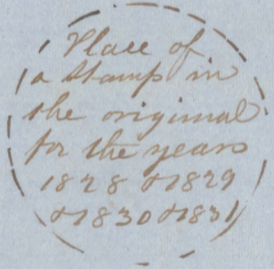 Place of
a Stamp in
the original
for the years
1828 & 1829
& 1830 & 1831